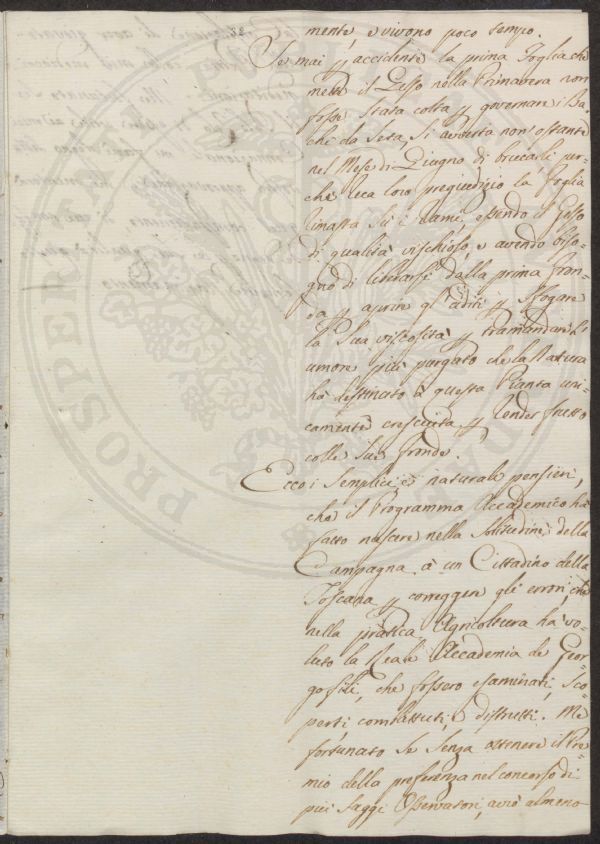 32
mente, e vivono poco tempo.
Se mai p accidente la prima foglia che
mette il Gelso nella Primavera non
fosse stata colta p governare i Ba-
chi da seta, si avverta non ostante
nel Mese di Giugno di brucarli, per-
chè reca loro pregiudizio la foglia
rimasta su i rami, essendo il Gelso
di qualità vischioso, e avendo biso-
gno di liberarsi dalla prima fron-
da p aprire gl'aditi p sfogare
la sua viscosità p tramandare l'
umore più purgato che la Natura
ha destinato à questa Pianta uni-
camente cresciuta p render frutto
colle sue fronde.
Ecco i semplici, e naturali pensieri,
che il Programma Accademico ha
fatto nascere nella solitudine della
Campagna à un Cittadino della
Toscana p correggere gli errori, che
nella pratica Agricoltura ha vo-
luto la Reale Accademia de Geor-
gofili, che fossero esaminati, sco-
perti combattuti, e distrutti. Me
fortunato se senza ottenere il Pre-
mio della preferenza nel concorso di
più saggi Osservatori, avrò almeno